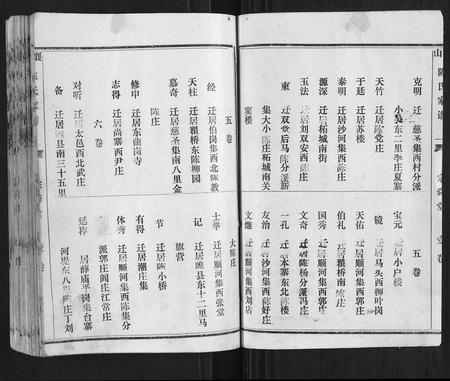 山 陈氏家谱
克明 迁居慈圣集西村分派
小吴东二里李庄夏寨
天竹 迁居陈党庄
于廷 迁居苏楼
泰明 迁居沙河集西陈庄
源深 迁居柘城南街
玉法 迁居刘双安西陈庄
東 迁双堂后马陈分派新
集大小陈庄柘城南关
窦楼
五卷
宝元 迁居小户楼
镜 迁居马头西柳叶岗
天佑 迁居顺河集西郭庄
伯礼 迁居瓘桥南陈庄
国秀 迁居顺河集西郭庄
文奇 迁居陈杨分派冯庄
一孔 迁本寨东北陈楼
友治 迁居沙河集西陈好庄
文继 迁居顺河集西刘店
五卷
经 迁居伯岗集西北陈教
天柱 迁居瓘桥东陈柳园
慕奇 迁居慈圣集南八里金
陈庄
修申 迁居东曲岗寺
志得 迁居尚寨西尹庄
六卷
对听 迁居太邑西北武庄
备 迁居西县南三十五里
大陈庄
士举 迁居顺河集西张堂
记 迁居睢县东十二里马
旗营
节 迁居陈小桥
有得 迁居潮庄集
体秀 迁居顺河集西陈集分
派郭庄阎庄江常庄
延祚 居薛庙平岗集台寨
河堤东八里陈庄丁刘